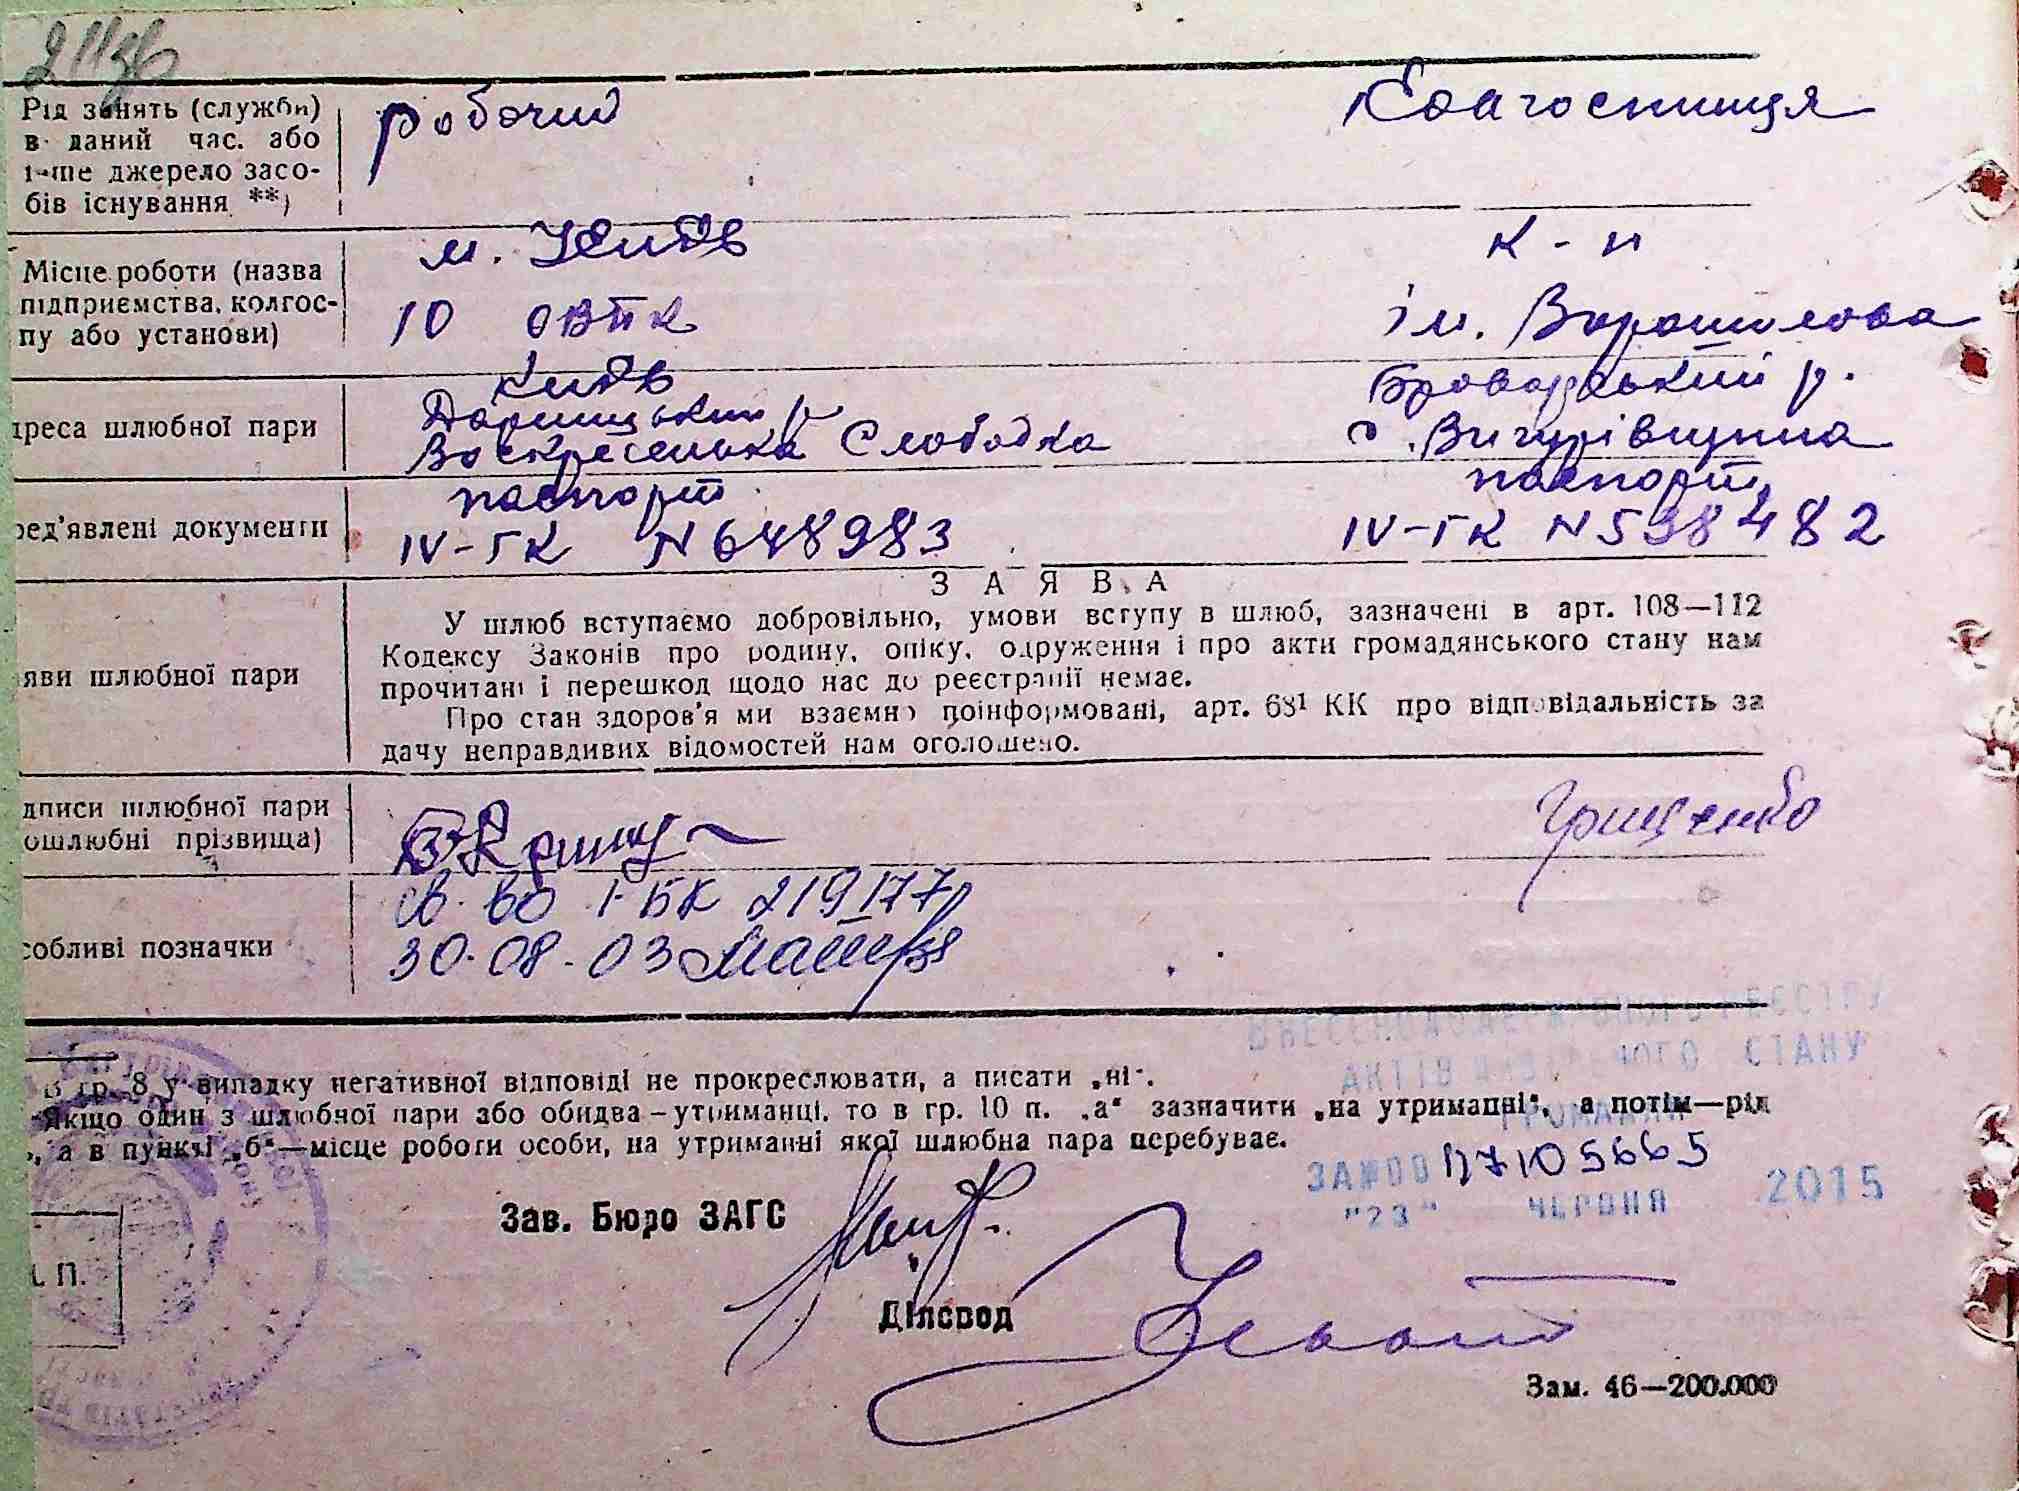 Рід занять (служби) в даний час. або інше джерело засобів існування **)
робочий
Колгоспниця
Місце роботи (назва підприємства, колгоспу або установи)
м. Київ
10 ОВТК
к-п
ім. Ворошилова
дреса шлюбної пари
Київ
Дарницький р
Воскресенська Слободка
Броварський р.
с. Вигурівщина
ред'явлені документи
паспорт
IV-ГК N 648983
паспорт
IV-ГК N 598482
З А Я В А
яви шлюбної пари
У шлюб вступаємо добровільно, умови вступу в шлюб, зазначені в арт. 108—112
Кодексу Законів про родину, опіку, одруження і про акти громадянського стану нам
прочитані і перешкод щодо нас до реєстрації немає.
Про стан здоров'я ми взаємно поінформовані, арт. 68¹ КК про відповідальність за
дачу неправдивих відомостей нам оголошено.
дписи шлюбної пари
ошлюбні прізвища)
Грищенко
собливі позначки
св-во І-БК 219177
30.08.03
В гр. 8 у випадку негативної відповіді не прокреслювати, а писати „ні".
Якщо один з шлюбної пари або обидва—утриманці, то в гр. 10 п. „а" зазначити „на утриманні", а потім—рід
, а в пункті „б"—місце роботи особи, на утриманні якої шлюбна пара перебуває.
РЕЄСТРУ
АКТІВ СТАНУ
ГРОМАДЯН
ЗА №00 17105665
"23" ЧЕРВНЯ 2015
Зав. Бюро ЗАГС
Діловод
. П.
Зам. 46—200.000